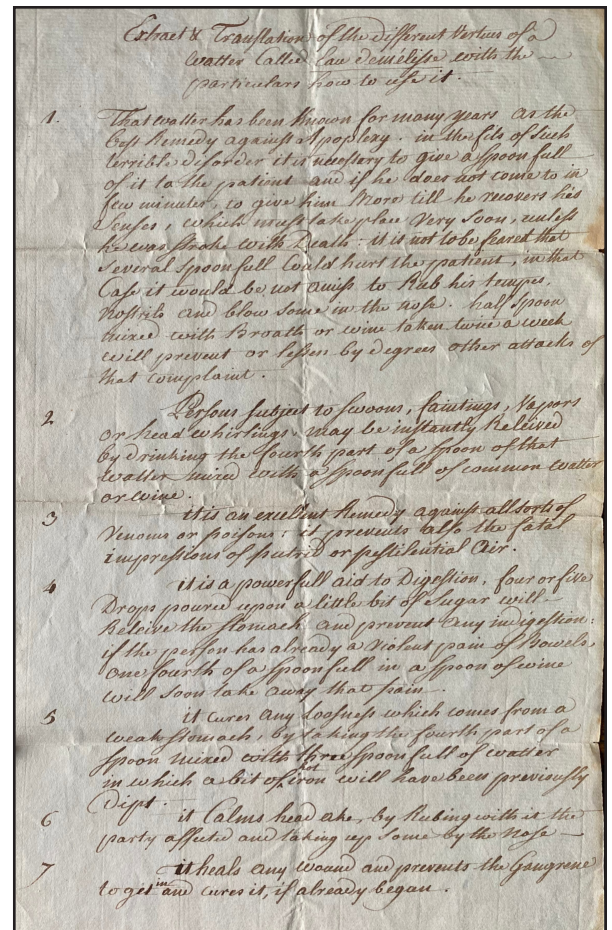 Extract & Translation of the different Vertues of a
Watter Called Eau demélisse with the
particulars how to use it.
1. That watter has been Known for many years as the
best Remedy against Apoplexy. in the fits of such
terrible disorder it is necessary to give a spoon full
of it to the patient and if he does not come to in
few minutes, to give him More till he recovers his
Senses, which must take place Very Soon, unless
he was stroke with Death: it is not to be feared that
several spoonfull Could hurt the patient, in that
Case it would be not amiss to Rub his tempes,
nostrils and blow some in the nose. half spoon
mixed with Broath or wine taken twice a week
will prevent or lessen by degrees other attacks of
that complaint.
2 Persons subject to swoons, faintings, Vapors
or head whirlings may be instantly Releived
by drinking the fourth part of a spoon of that
Watter mixed with a spoonfull of common watter
or wine.
3 it is an excellent Remedy against all sorts of
Venoms or poisons: it prevents also the fatal
impressions of putrid or pestilential Air.
4 it is a powerfull aid to Digestion, four or five
Drops poured upon a little bit of Sugar will
Releive the stomach and prevent any indigestion:
if the person has already a Violent pain of Bowels
one fourth of a spoonfull in a spoon of wine
will soon take away that pain.
5 it cures any loosness which comes from a
weak stomach, by taking the fourth part of a
spoon mixed with three spoonfull of watter
in which a bit of hot iron will have been previously
Dipt.
6 it Calms head ake, by Rubing with it the
party affected and taking up some by the nose
7 it heals any wound and prevents the Gangrene
to get in and cures it, if already began.